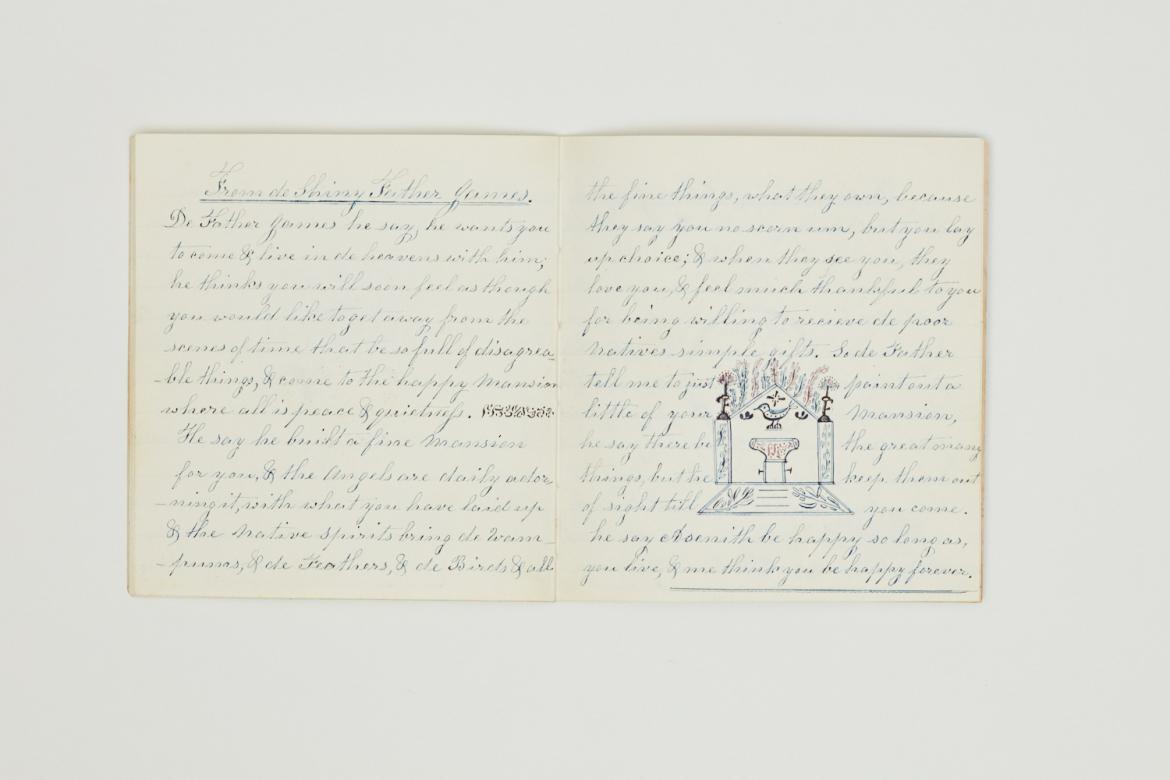 From de Shiny Father James.
De Father James he say, he wants you
to come & live in de heavens with him;
he thinks you will soon feel as though
you would like to get away from the
scenes of time that be so full of disagrea
-ble things, & come to the happy Mansion
where all is peace & quietness.
He say he built a fine Mansion
for you, & the Angels are daily ador-
-ning it, with what you have laid up
& the Native Spirits bring de Wam-
-pums, & de Feathers, & de Birds & all
the fine things, what they own, because
they say you no scorn um, but you lay
up choice; & when they see you, they
love you, & feel much thankful to you
for being willing to recieve de poor
Natives simple gifts. So de Father
tell me to just paint out a
little of your Mansion,
he say there be the great many
things, but he keep them out
of sight till you come.
he say Asenith be happy so long as,
you live, & me think you be happy forever.